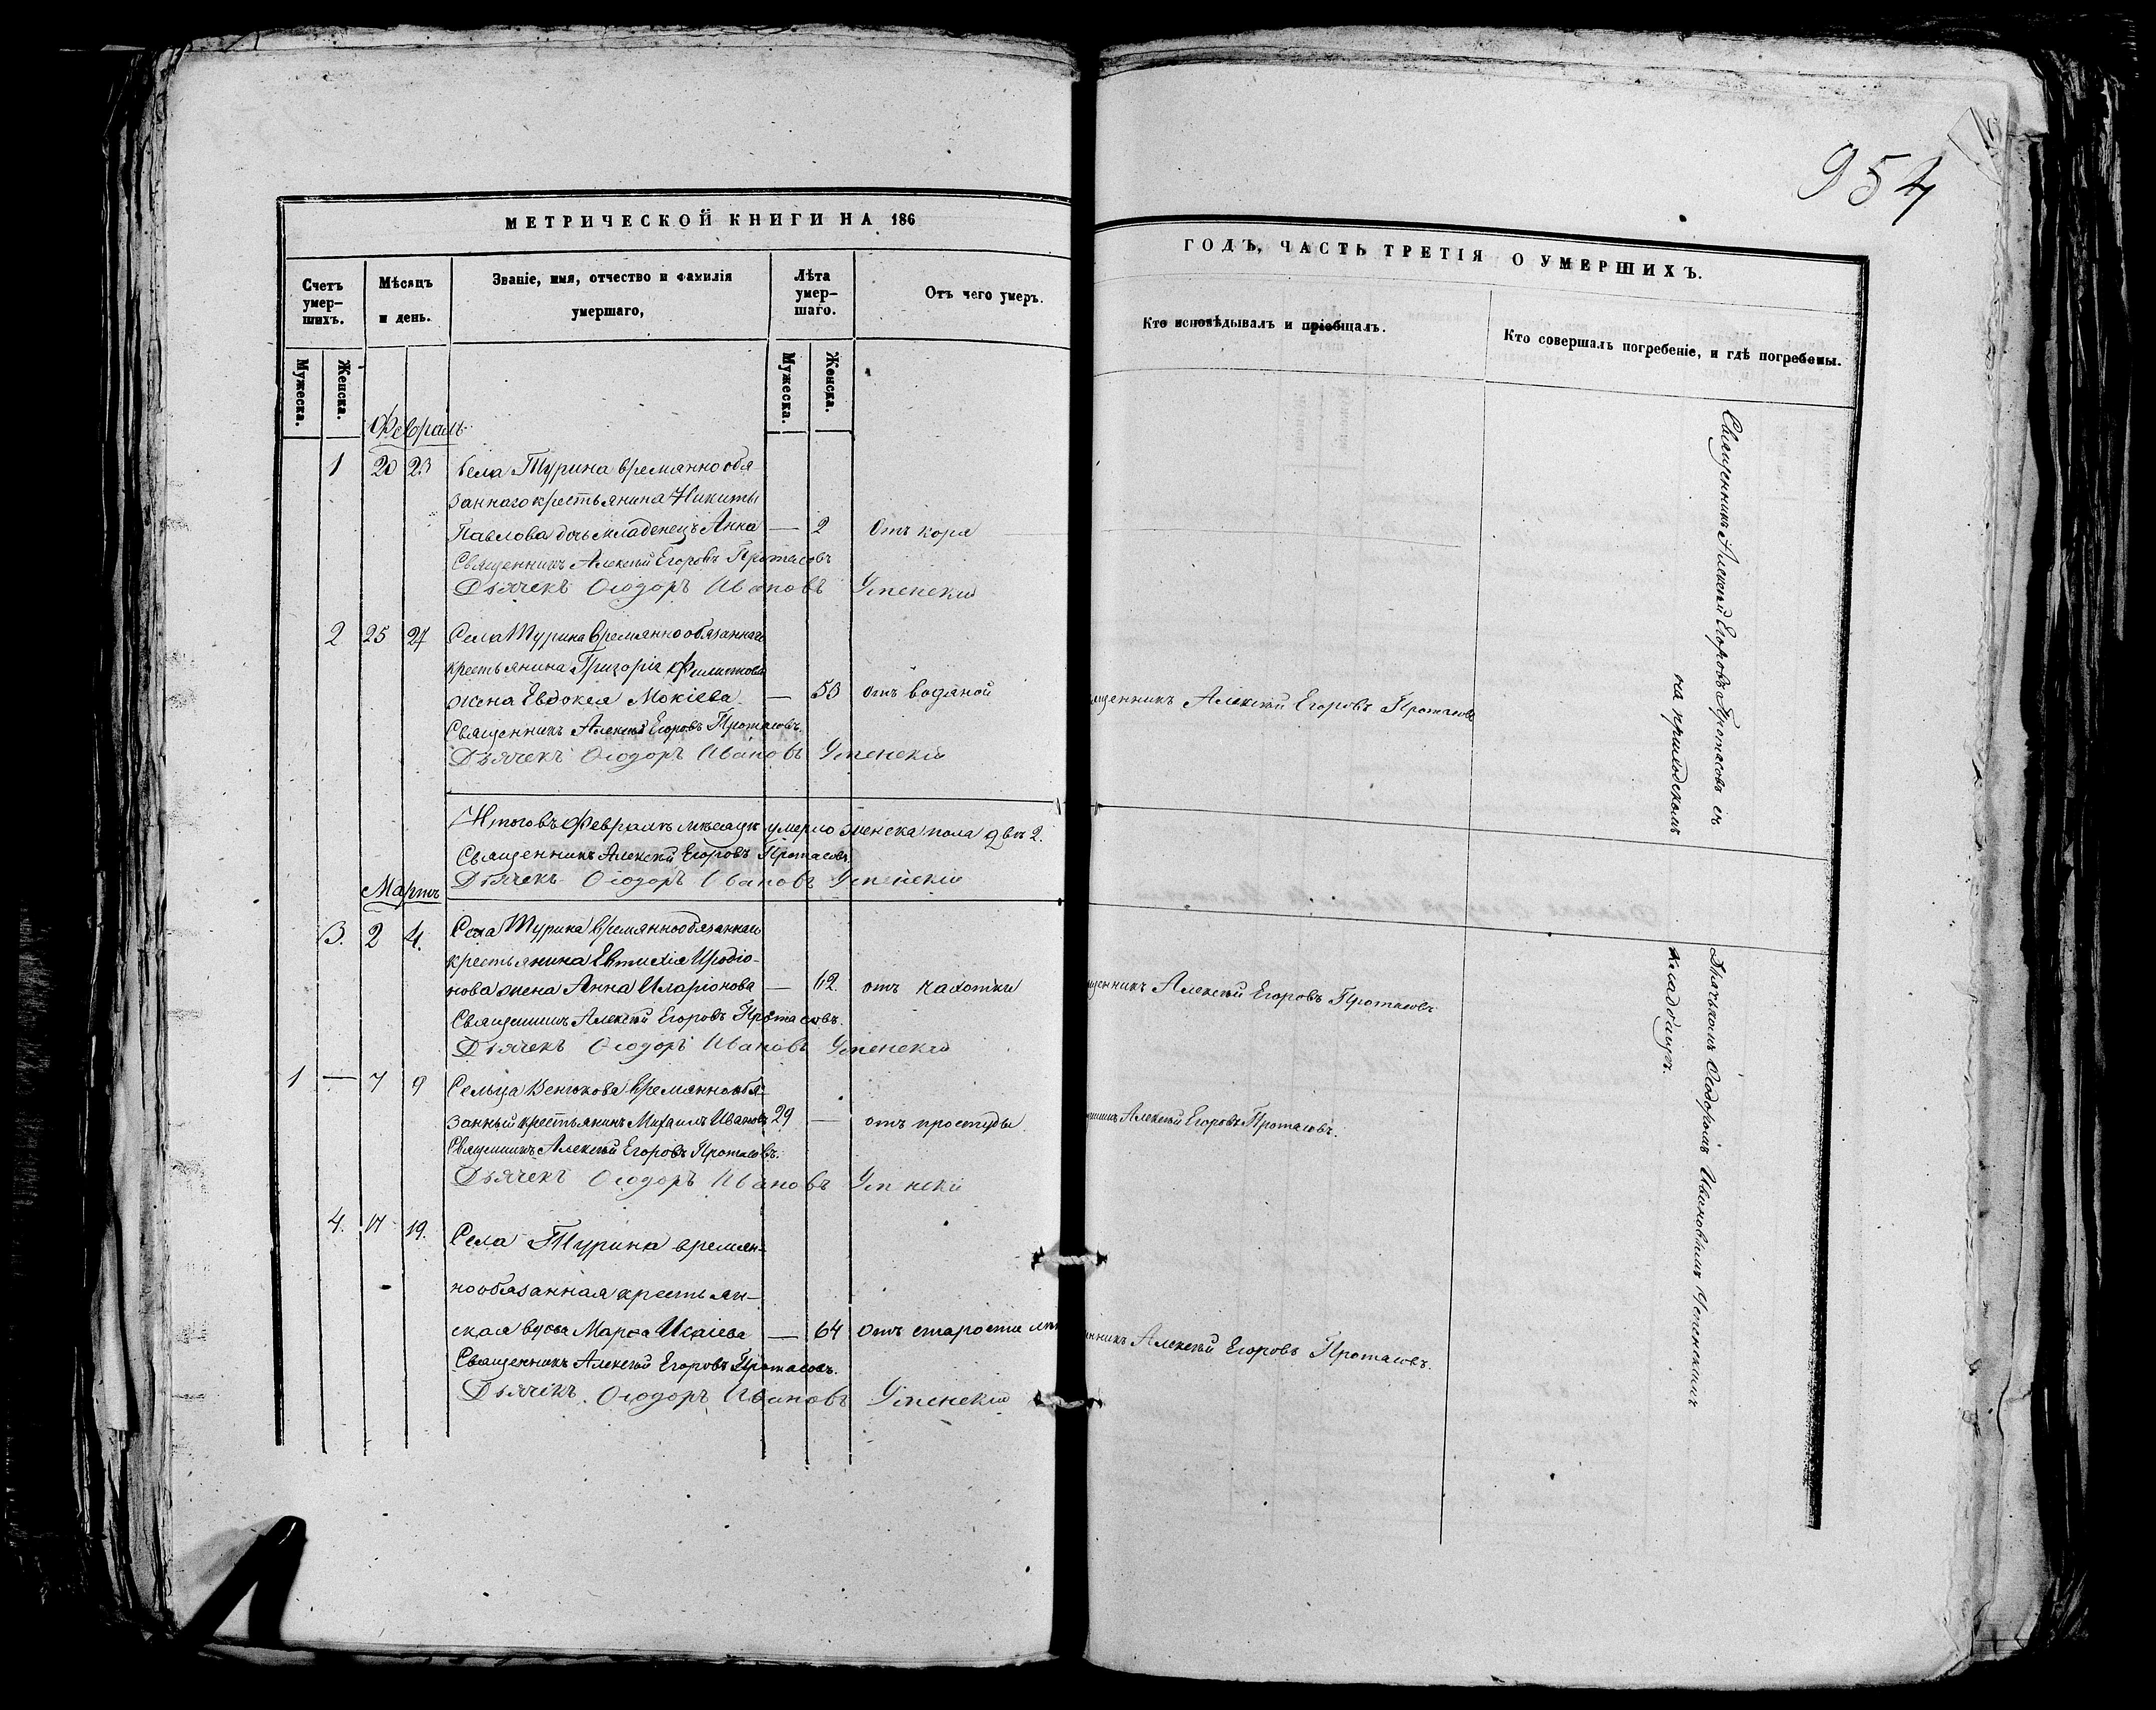 954
МЕТРИЧЕСКОЙ КНИГИ НА 186
Счетъ умер-шихъ.
Мѣсяцъ и день.
Званіе, имя, отчество и фамилія умершаго,
Лѣта умер-шаго.
Отъ чего умеръ.
Мужеска.
Женска.
Мужеска.
Женска.
Февраль
1 20 23 Села Турина времянно обя
заннаго крестьянина Никиты
Павлова дочь младенецъ Анна — 2 Отъ коря
Священникъ Алексѣй Егоровъ Протасовъ
Дьячекъ Ѳеодоръ Ивановъ Успенскій
2 25 27 Села Турина времянно обязаннаго
крестьянина Григорія Филиппова
жена Евдокея Мокіева — 53 отъ водяной
Священникъ Алексѣй Егоровъ Протасовъ
Дьячекъ Ѳеодоръ Ивановъ Успенскій
Итого въ Февралѣ мѣсяцѣ умерло женска пола двѣ 2.
Священникъ Алексѣй Егоровъ Протасовъ.
Дьячекъ Ѳеодоръ Ивановъ Успенскій
Мартъ
3. 2 4. Села Турина времяннообязаннаго
крестьянина Евтихія Иродіо-
нова жена Анна Иларіонова — 62 отъ чахотки
Священникъ Алексѣй Егоровъ Протасовъ.
Дьячекъ Ѳеодоръ Ивановъ Успенскій
1 — 7 9 Сельца Венюкова времяннообя-
занный крестьянинъ Михаилъ Ивановъ 29 — отъ простуды.
Священникъ Алексѣй Егоровъ Протасовъ.
Дьячекъ Ѳеодоръ Ивановъ Успенскій
4. 17 19. Села Турина времян-
нообязанная крестьян-
ская вдова Марѳа Исаіева — 64 Отъ старости
Священникъ Алексѣй Егоровъ Протасовъ.
Дьячекъ Ѳеодоръ Ивановъ Успенскій
ГОДЪ, ЧАСТЬ ТРЕТІЯ О УМЕРШИХЪ.
Кто исповѣдывалъ и пріобщалъ.
Кто совершалъ погребеніе, и гдѣ погребены.
щенникъ Алексѣй Егоровъ Протасовъ
щенникъ Алексѣй Егоровъ Протасовъ
Алексѣй Егоровъ Протасовъ.
нникъ Алексѣй Егоровъ Протасовъ.
Священникъ Алексѣй Егоровъ Протасовъ съ
Дьячькомъ Ѳеодоромъ Ивановымъ Успенскимъ
на приходскомъ
кладбищѣ.